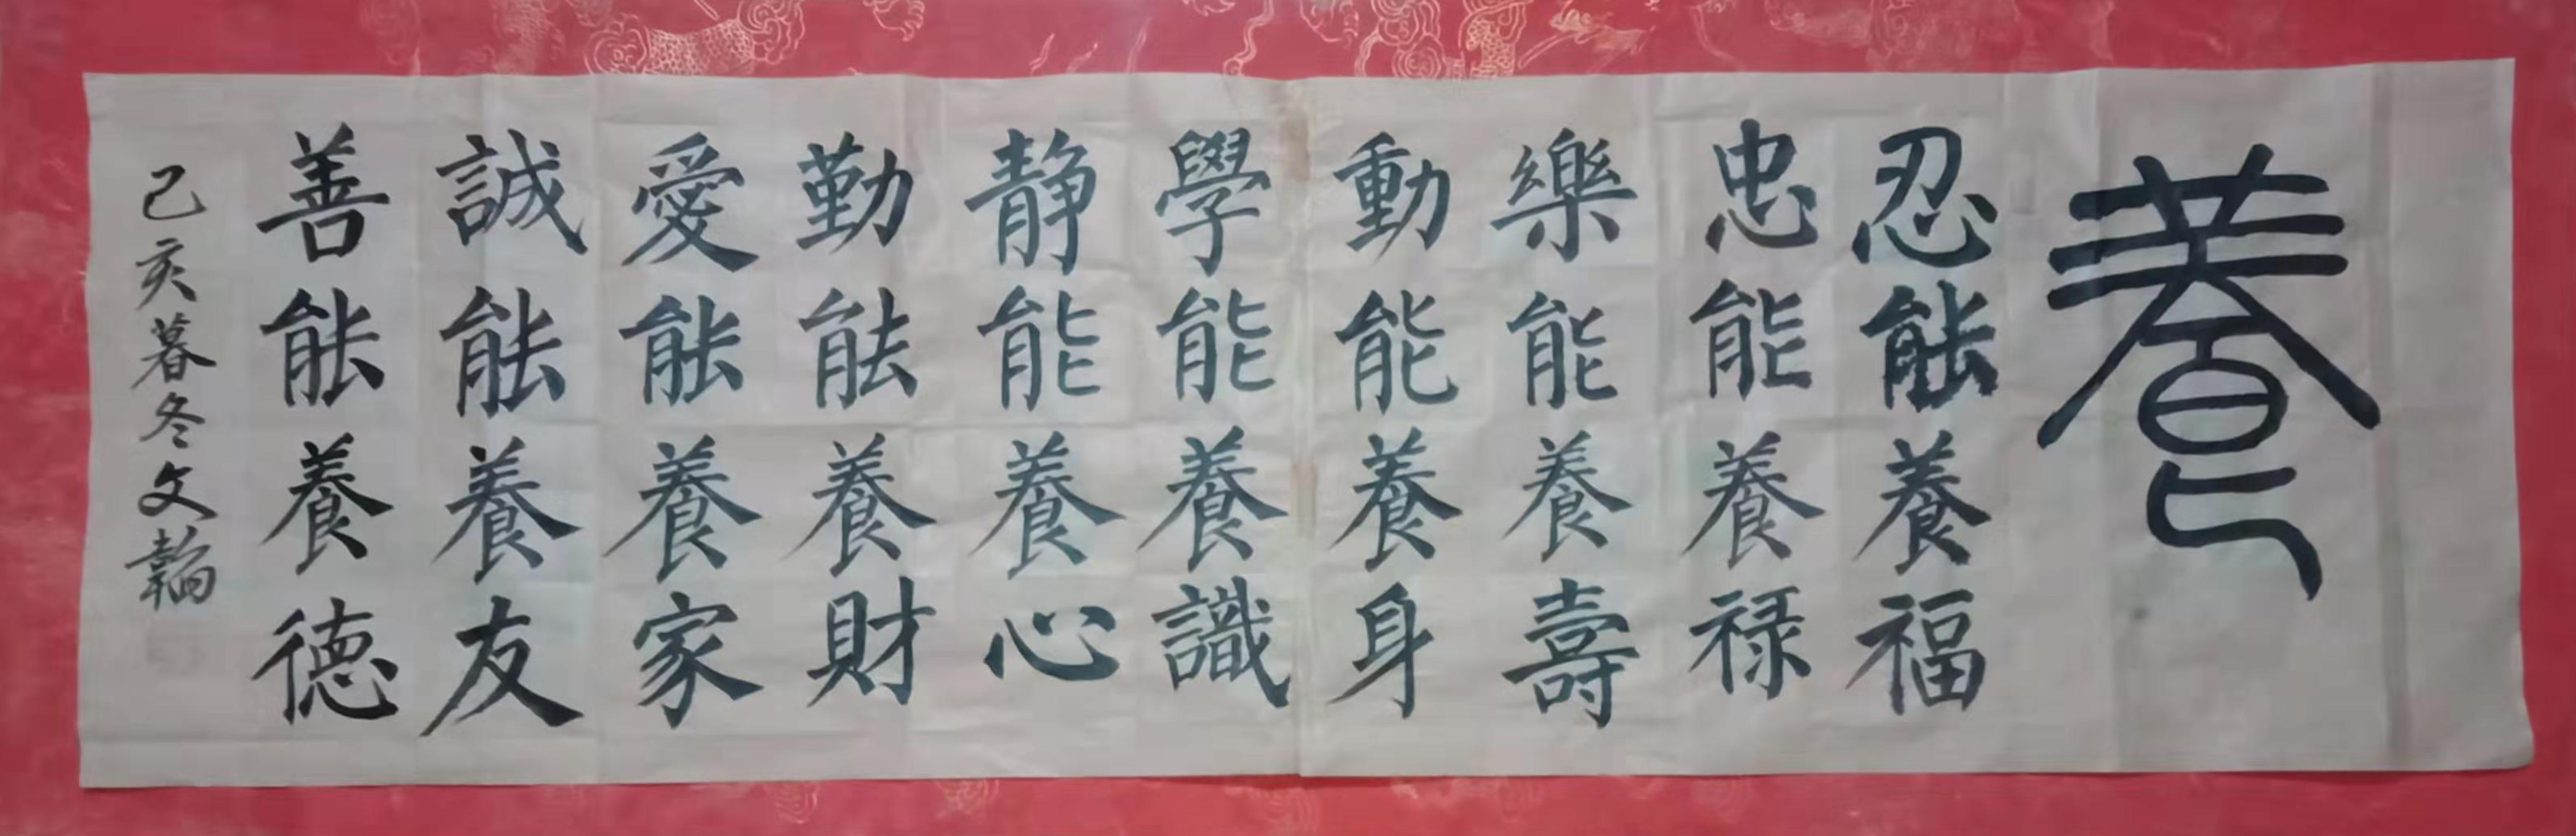 養
忍能養福
忠能養禄
樂能養壽
動能養身
學能養識
静能養心
勤能養財
愛能養家
誠能養友
善能養德
己亥暮冬文翰